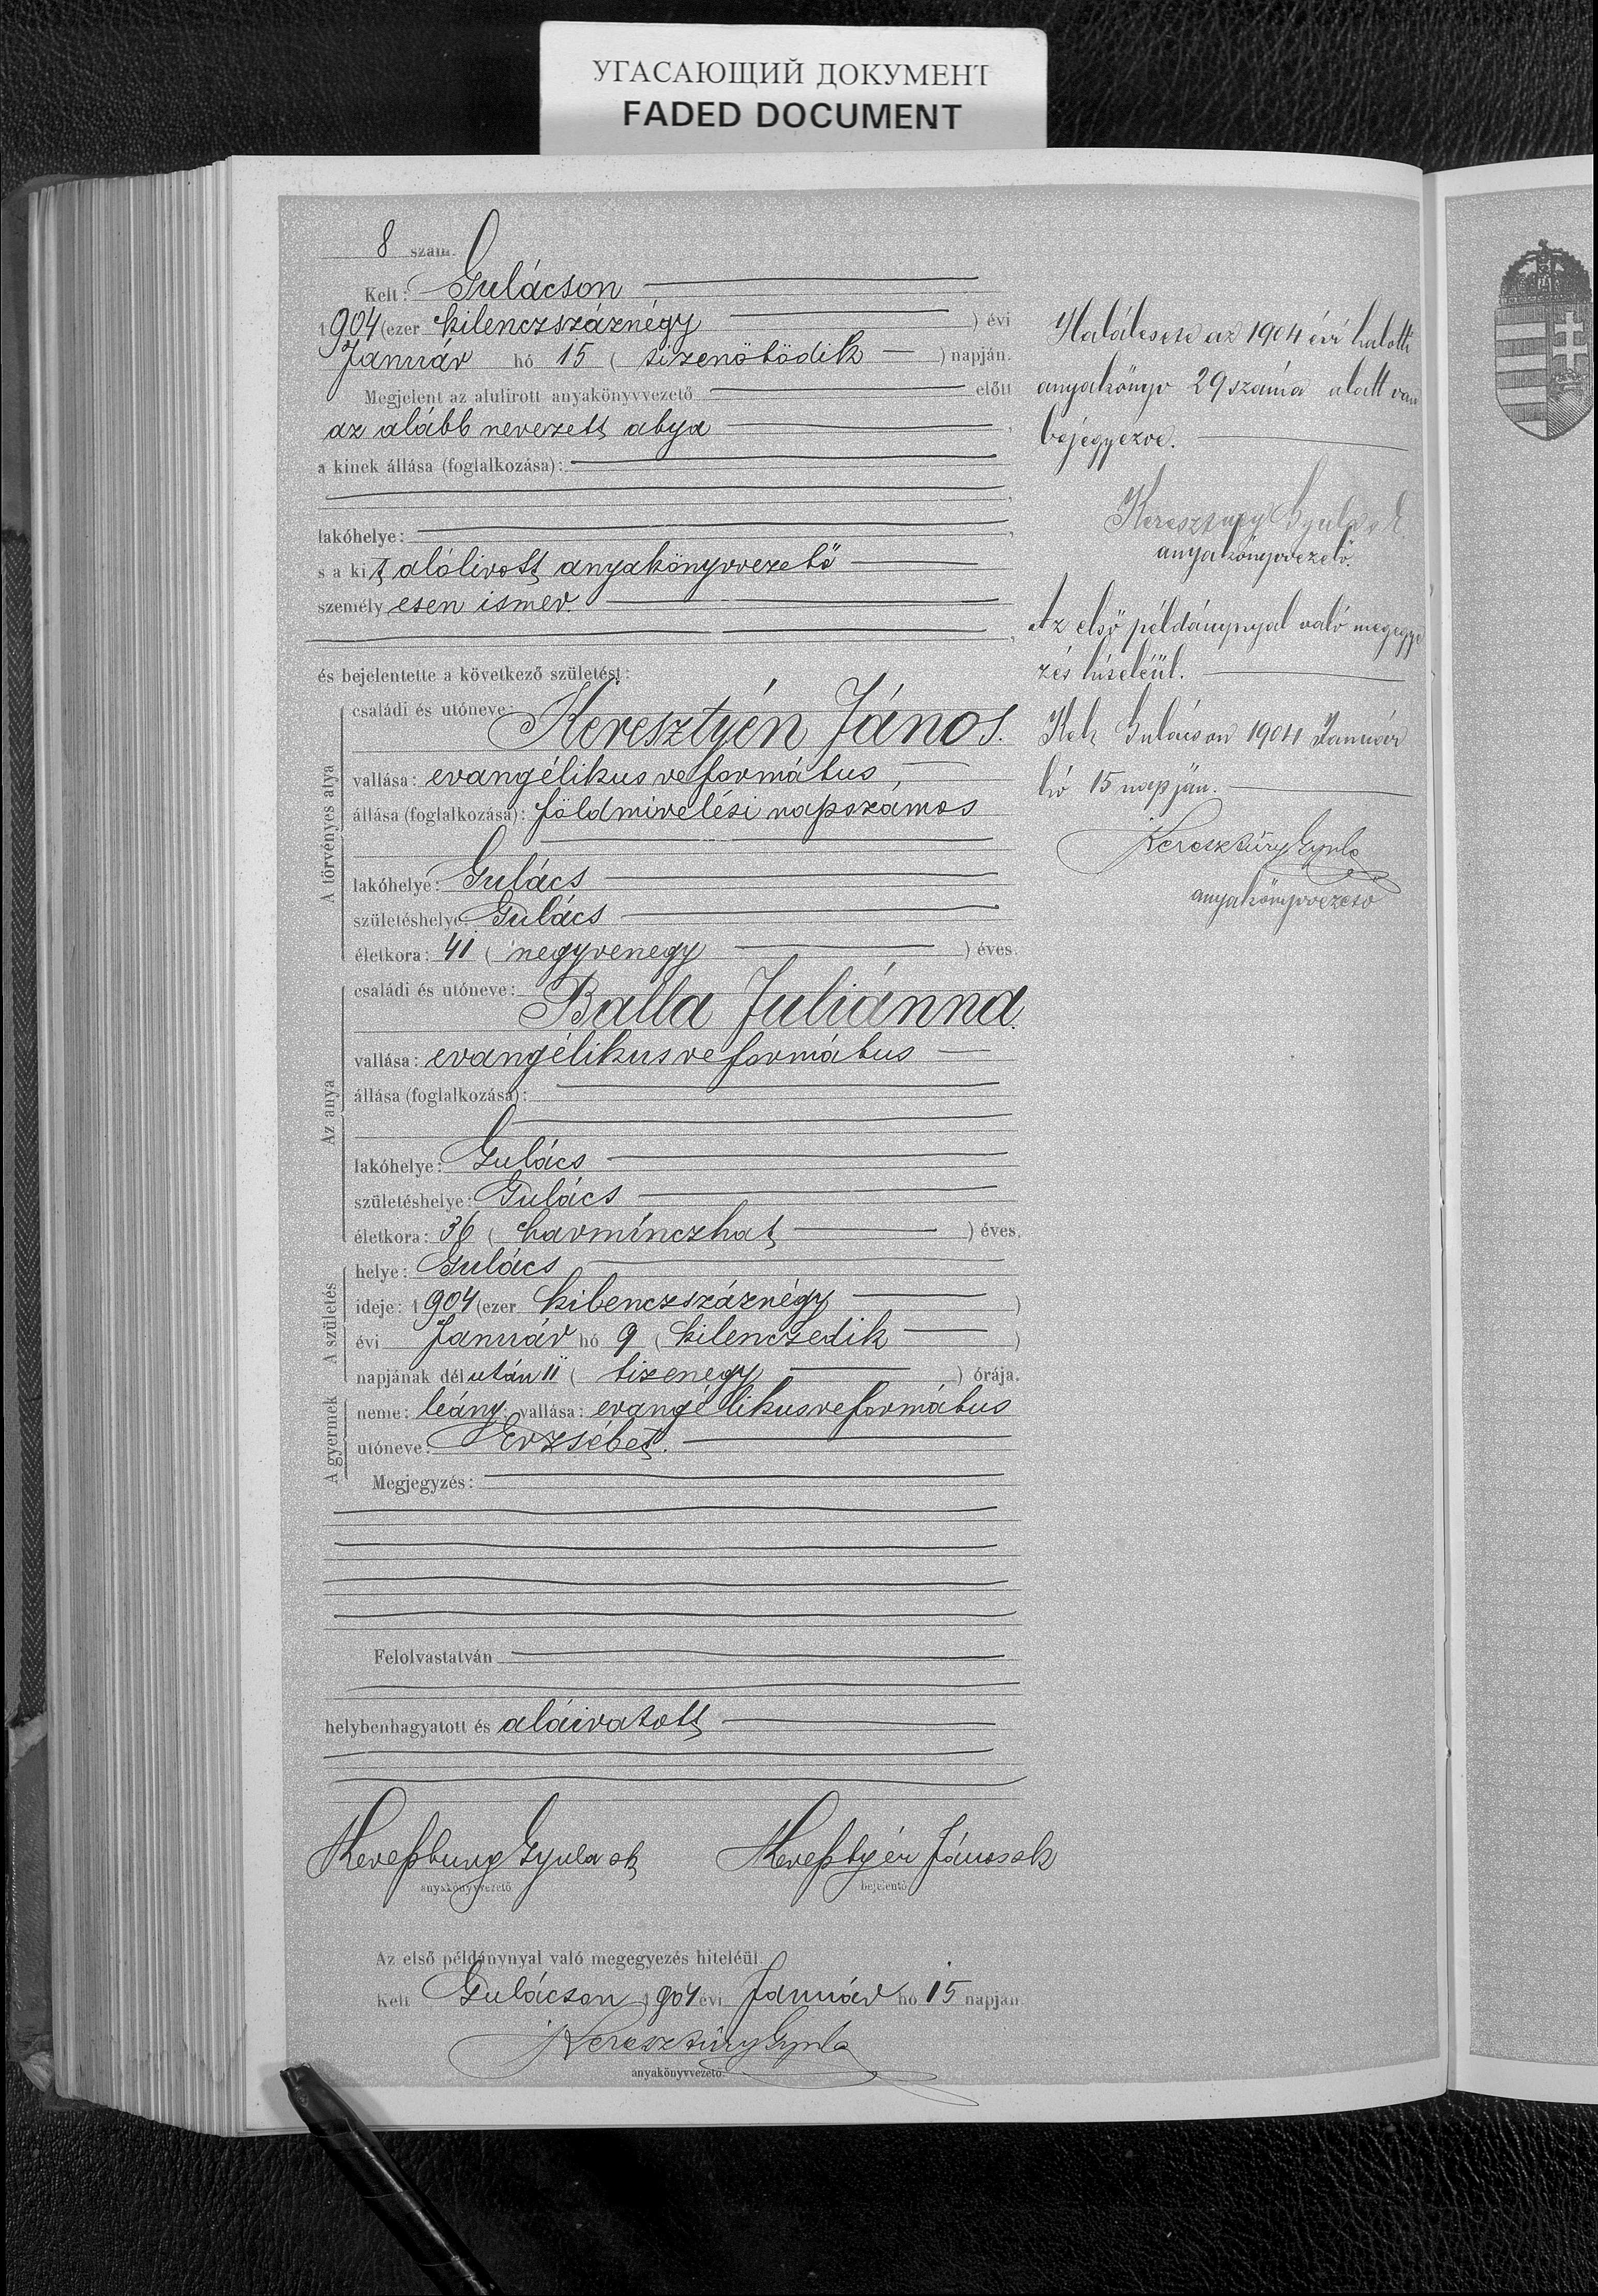 УГАСАЮЩИЙ ДОКУМЕНТ
FADED DOCUMENT
8 szám.
Kelt: Gulácson
1904 (ezer kilenczszáznégy ) évi
Január hó 15 ( tizenötödik ) napján.
Megjelent az alulirott anyakönyvvezető előtt
az alább nevezett atya ,
a kinek állása (foglalkozása):
lakóhelye:
s a kit alólirott anyakönyvvezető
személyesen ismer.
és bejelentette a következő születést:
A törvényes atya
családi és utóneve: Keresztyén János.
vallása: evangélikus református,
állása (foglalkozása): földmivelési napszámos
lakóhelye: Gulács
születéshelye: Gulács
életkora: 41 ( negyvenegy ) éves.
Az anya
családi és utóneve: Balla Juliánna.
vallása: evangélikus református
állása (foglalkozása):
lakóhelye: Gulács
születéshelye: Gulács
életkora: 36 ( harminczhat ) éves.
A születés
helye: Gulács
ideje: 1904 (ezer kilenczszáznégy )
évi Január hó 9 ( kilenczedik )
napjának délután 11 ( tizenegy ) órája.
A gyermek
neme: leány; vallása: evangélikus református
utóneve: Erzsébet.
Megjegyzés:
Felolvastatván
helybenhagyatott és aláiratott
Gyula sk Keresztyén János sk
anyakönyvvezető bejelentő
Az első példánynyal való megegyezés hiteléül.
Kelt Gulácson 1904 évi Január hó 15 napján.
Keresztúry Gyula
anyakönyvvezető.
Halálesete az 1904 évi halotti
anyakönyv 29 száma alatt van
bejegyezve.
Keresztury Gyula sk.
anyakönyvvezető.
Az első példánynyal való megegye
zés hiteléül.
Kelt Gulácson 1904 Január
hó 15 napján.
Keresztúry Gyula
anyakönyvvezető